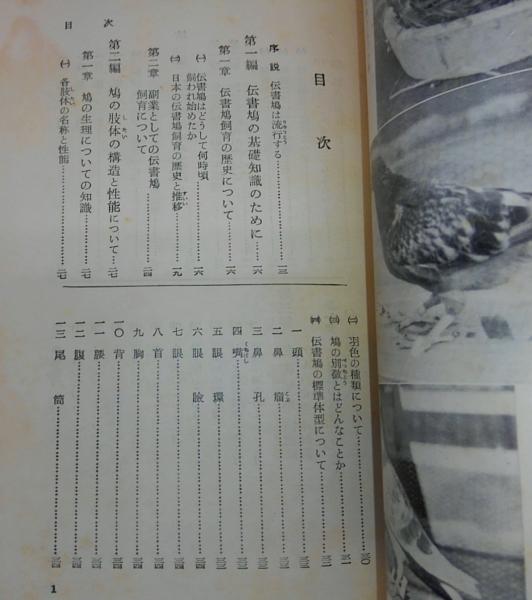 目次
序説 伝書鳩は流行する……一三
第一編 伝書鳩の基礎知識のために……一六
第一章 伝書鳩飼育の歴史について……一六
㈠ 伝書鳩はどうして何時頃
飼われ始めたか……一六
㈡ 日本の伝書鳩飼育の歴史と推移……一九
第二章 副業としての伝書鳩
飼育について……二四
第二編 鳩の肢体の構造と性能について……二七
第一章 鳩の生理についての知識……二七
㈠ 各肢体の名称と性能……二七
目次
㈡ 羽色の種類について……三〇
㈢ 鳩の別徴とはどんなことか……三一
㈣ 伝書鳩の標準体型について……三二
一 頭
二 鼻瘤
三 鼻孔
四 嘴
五 眼環
六 眼瞼
七 眼
八 首
九 胸
一〇 背
一一 腰
一二 腹
一三 尾筒
1